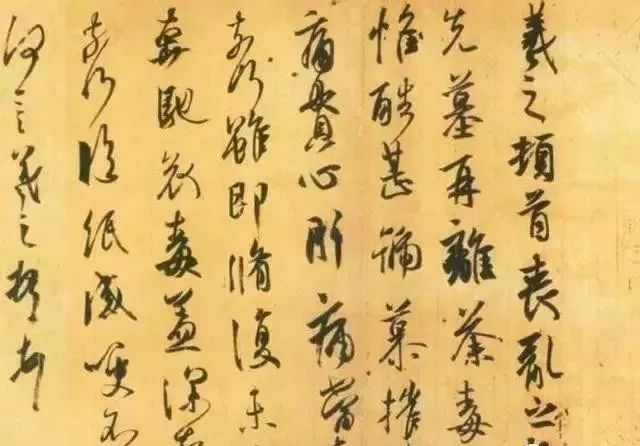 羲之頓首喪亂之
先墓再離荼毒
惟酷甚號慕摧
痛貫心肝痛當
奈何雖即脩復未
奔馳哀毒益深奈
奈何臨紙感哽不
何言羲之頓首